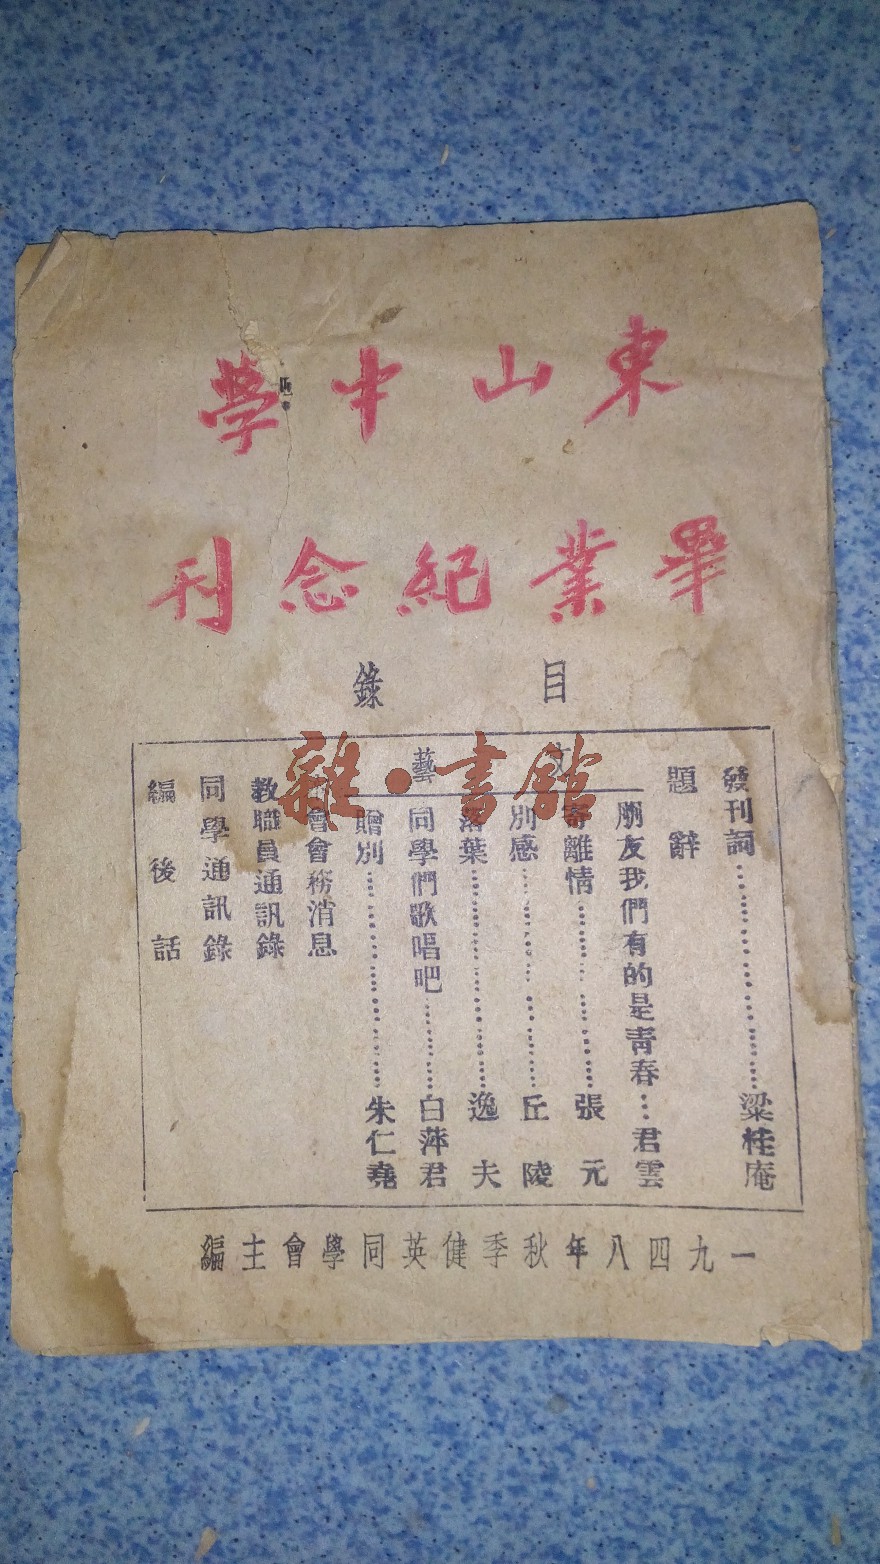 東山中學
畢業紀念刊
目錄
發刊詞……………………梁桂庵
題辭
文藝
朋友我們有的是青春…君雲
寄離情……………張元
別感……………丘陵
落葉……………逸夫
同學們歌唱吧………白萍君
贈別……………………朱仁堯
會會務消息
教職員通訊錄
同學通訊錄
編後話
一九四八年秋季健英同學會主編
雜·書館